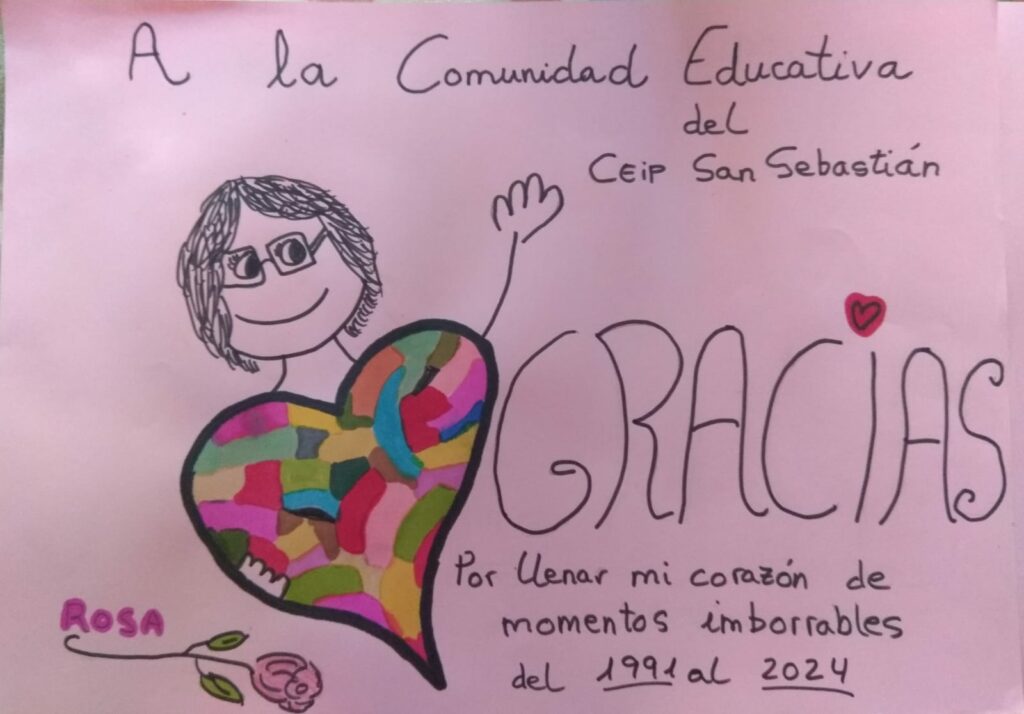 A la Comunidad Educativa
del
CEIP San Sebastián
GRACIAS
Por llenar mi corazón de
momentos imborrables
del 1991 al 2024
ROSA